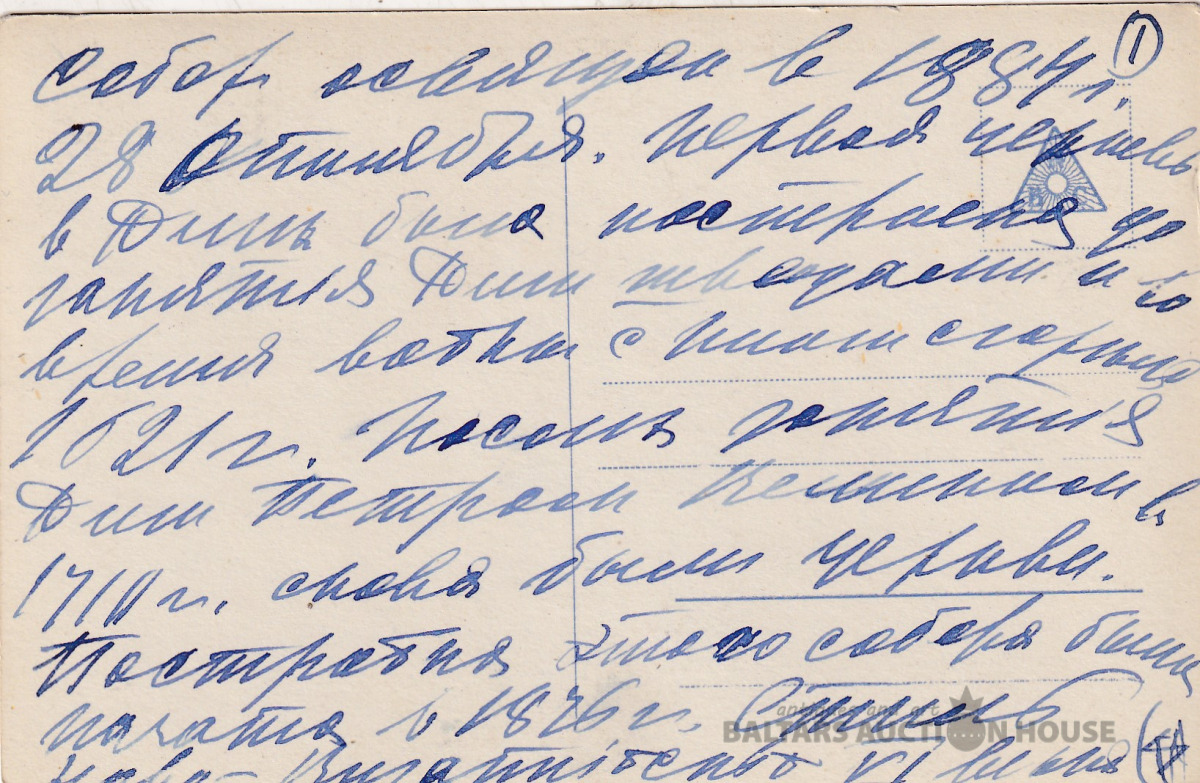 ①
Собор освящен в 1884 г.
28 Октября. Первая церковь
в Риге была построена до
занятия Риги шведами и во
время войны с
1621 г. После занятия
Риги Петром Великим в
1710 г. снова были церкви.
Постройка этого собора была
начата в 1876 г. Стиль
Ново-Византийский VI века
antiques and art
BALTARS AUCTION HOUSE